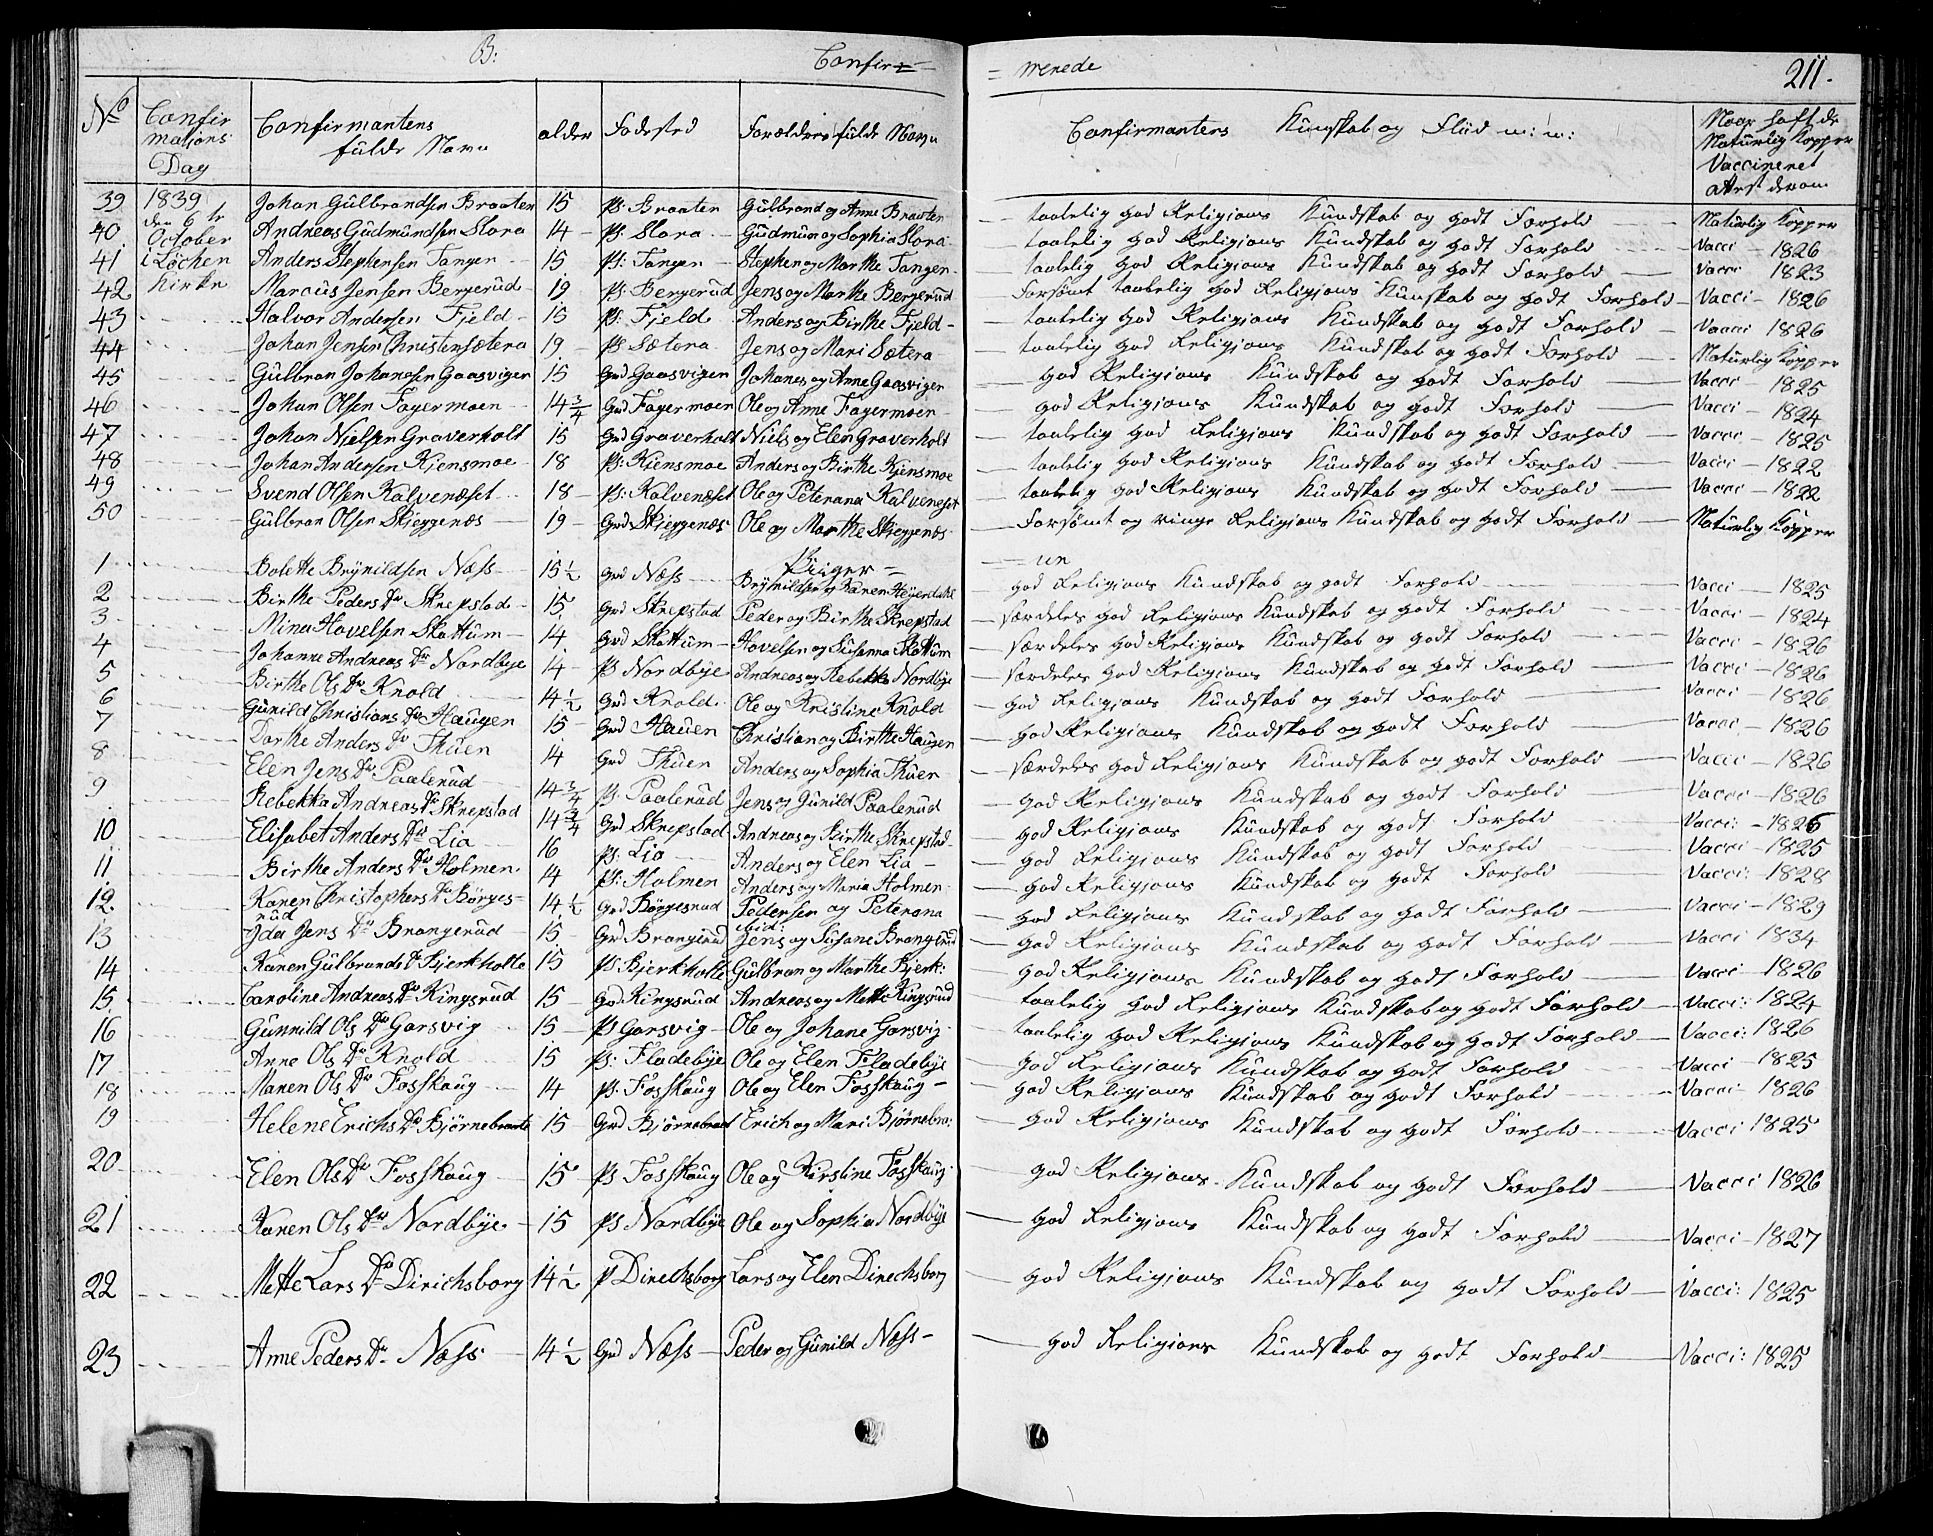 B: Confir= = merede 211.
No Confir mations Dag Confirmantens fulde Navn alder Fødested Forældres fulde Navn Confirmantens Kunskab og Fliid m: m: Naar hafte Naturlig Kopper Vaccineret Attest derom
39 1839 Johan Gülbrandsen Braaten 15 Ps: Braaten Gülbrand og Anne Braaten taalelig god Religions Kundskab og godt Forhold Naturlig Kopper
40 den 6te October Andreas Güdmündsen Slora 14 Ps: Slora Güdmün og Sophia Slora taalelig god Religions Kundskab og godt Forhold Vacci 1826
41 i Løchen Anders Stephensen Tangen 15 Ps: Tangen Stephen og Marthe Tangen taalelig god Religions Kundskab og godt Forhold Vacci 1823
42 Kirke Marcüs Jensen Bergerüd 19 Ps: Bergerüd Jens og Marthe Bergerüd Forsømt taalelig god Religions Kunskab og godt Forhold Vacci 1826
43 Halvor Andersen Fjeld 15 Ps: Fjeld Anders og Birthe Fjeld taalelig god Religions Kundskab og godt Forhold Vacci 1826
44 Johan Jensen Christensætera 19 Ps Sætera Jens og Mari Sætera taalelig god Religions Kundskab og godt Forhold Naturlig Kopper
45 Gülbran Johanesen Gaasviger 15 Grd Gaasvigen Johanes og Anne Gaasviger god Religions Kundskab og godt Forhold Vacci 1825
46 Johan Olsen Fagermoen 14 3/4 Grd Fagermoen Ole og Anne Fagermoen god Religions Kundskab og godt Forhold Vacci 1824
47 Johan Nielsen Graverholt 15 Grd Graverholt Niels og Elen Graverholt taalelig god Religions Kundskab og godt Forhold Vacci 1825
48 Johan Andersen Kjensmoe 18 Ps: Kjensmoe Anders og Birthe Kjensmoe taalelig god Religions Kundskab og godt Forhold Vacci 1822
49 Svend Olsen Kalvenæset 18 Ps: Kalvenæset Ole og Peterana Kalvenæset taalelig god Religions Kundskab og godt Forhold Vacci 1822
50 Gülbran Olsen Skjeggenæs 19 Grd Skjeggenæs Ole og Marthe Skjeggenæs Forsømt og ringe Religions Kundskab og godt Forhold Naturlig Kopper
Piiger
1 Bolette Brynildsen Næss 15 1/2 Grd Næss Brynildsen og Karen Heyerdahl god Religions Kundskab og godt Forhold Vacci 1825
2 Birthe Peders Dr Skrepstad 15 Grd Skrepstad Peder og Birthe Skrepstad særdeles god Religions Kundskab og godt Forhold Vacci 1824
3 Mina Hovelsen Skattum 14 Grd Skattum Hovelsen og Süsanna Skattum særdeles god Religions Kundskab og godt Forhold Vacci 1826
4 Johanne Andreas Dr Nordbye 14 Ps Nordbye Andreas og Rebekka Nordbye særdeles god Religions Kundskab og godt Forhold Vacci 1826
5 Birthe Ols Dr Knold 14 1/2 Grd Knold Ole og Kristine Knold god Religions Kundskab og godt Forhold Vacci 1826
6 Günild Christians Dr Haugen 15 Grd Hauen Christian og Birthe Haugen god Religions Kundskab og godt Forhold Vacci 1826
7 Dorthe Anders Dr Thüen 14 Grd Thüen Anders og Sophia Thüen særdeles god Religions Kundskab og godt Forhold Vacci 1826
8 Elen Jens Dr Paalerüd 14 3/4 Ps Paalerüd Jens og Günild Paalerüd god Religions Kundskab og godt Forhold Vacci 1826
9 Rebekka Andreas Dr Skrepstad 14 3/4 Grd Skrepstad Andreas og Birthe Skrepstad god Religions Kundskab og godt Forhold Vacci: 1826
10 Elisabet Anders Dr Lia 16 Ps: Lia Anders og Elen Lia god Religions Kundskab og godt Forhold Vacci: 1825
11 Birthe Anders Dr Holmen 14 Ps: Holmen Anders og Maria Holmen god Religions Kundskab og godt Forhold Vacci: 1828
12 Karen Christophers Dr Børgesrüd 14 1/2 Grd Børgesrüd Pedersen og Peterana ibid: god Religions Kundskab og godt Forhold Vacci 1829
13 Ida Jens Dr Brangerüd 15 Grd Brangerüd Jens og Susane Brangerüd god Religions Kundskab og godt Forhold Vacci 1834
14 Karen Gülbrands Dr Bjerkholte 15 Ps Bjerkholte Gülbran og Marthe Bjerk: god Religions Kundskab og godt Forhold Vacci 1826
15 Caroline Andreas Dr Kingsrüd 15 Gd Kingsrüd Andreas og Mette Kingsrüd taalelig god Religions Kundskab og godt Forhold Vacci: 1824
16 Gunnild Ols Dr Garsvig 15 Ps Garsvig Ole og Johane Garsvig taalelig god Religions Kundskab og godt Forhold Vacci: 1826
17 Anne Ols Dr Knold 15 Ps: Fladebye Ole og Elen Fladebye god Religions Kundskab og godt Forhold Vacci 1825
18 Maren Ols Dr Fosskaug 14 Ps: Fosskaug Ole og Elen Fosskaug god Religions Kundskab og godt Forhold Vacci 1826
19 Helene Erichs Dr Bjørnebraate 15 Grd Bjørnebraat Erich og Mari Bjørnebra: god Religions Kundskab og godt Forhold Vacci 1825
20 Elen Ols Dr Fosskaug 15 Ps Fosskaug Ole og Kirstine Fosskaug god Religions Kundskab og godt Forhold Vacci 1826
21 Karen Ols Dr Nordbye 15 Ps Nordbye Ole og Sophia Nordbye god Religions Kundskab og godt Forhold Vacci 1827
22 Mette Lars Dr Dirichsborg 14 1/2 P Direchsborg Lars og Elen Direchsborg god Religions Kundskab og godt Forhold Vacci: 1825
23 Anne Peders Dr Næss 14 1/2 Grd Næss Peder og Günild Næss god Religions Kundskab og godt Forhold Vacci: 1825